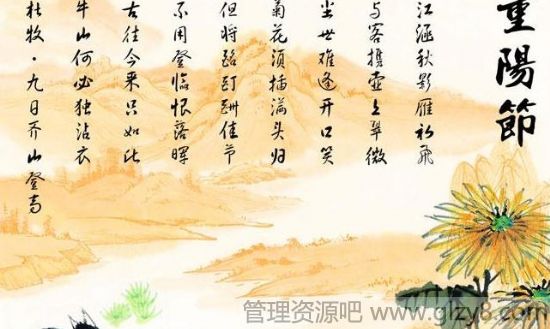 重陽節
江涵秋影雁初飞
与客携壶上翠微
尘世难逢开口笑
菊花须插满头归
但将酩酊酬佳节
不用登临恨落晖
古往今来只如此
牛山何必独沾衣
杜牧·九日齐山登高
管理资源吧 www.glzy8.com